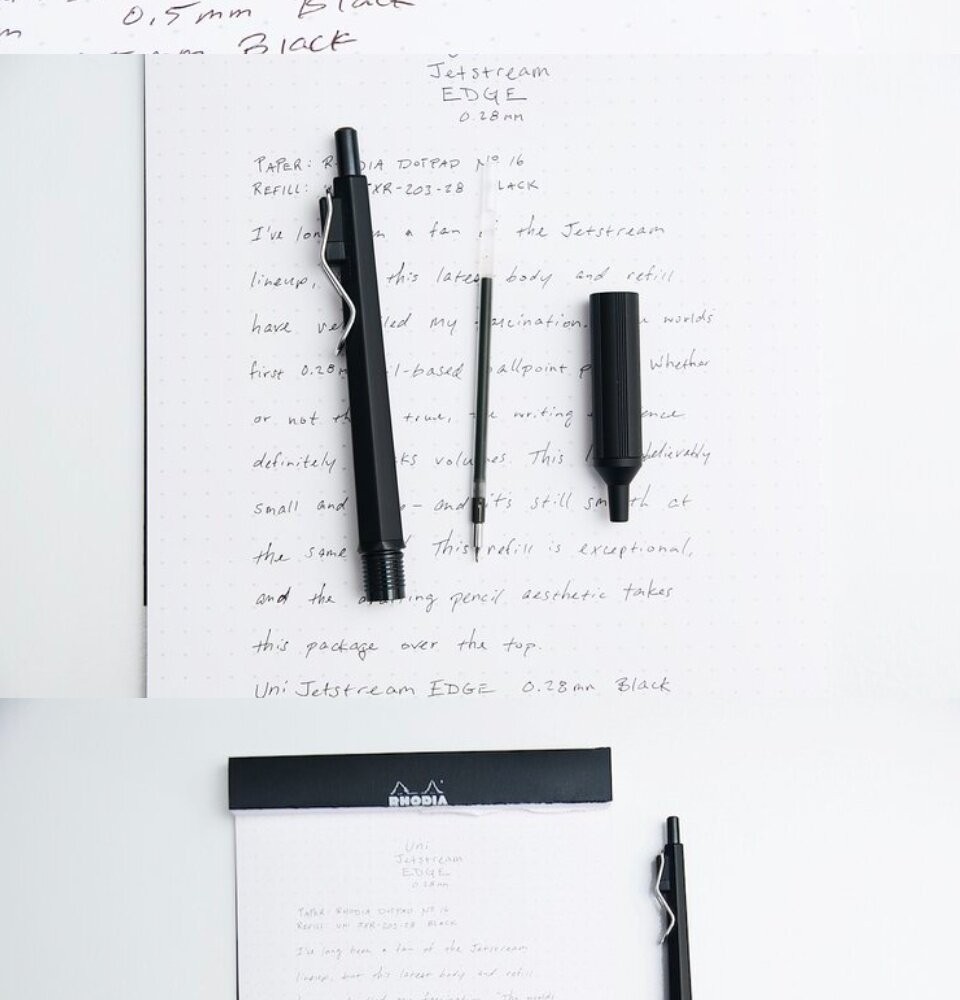 0.5mm Black
mm Black
Jetstream
EDGE
0.28mm
PAPER: R DIA DOTPAD Nº 16
REFILL: XR-203-28 LACK
I've lon a fan the Jetstream
lineup, this latest body and refill
have led my fascination. worlds
first 0.28 l-based allpoint p Whether
or not th true, writing ence
definitely ks volumes. This believably
small and – and it's still sm th at
the same This refill is exceptional,
and the drafting pencil aesthetic takes
this package over the top.
Uni Jetstream EDGE 0.28mm Black
RHODIA
Uni
Jetstream
EDGE
0.28mm
PAPER: RHODIA DOTPAD Nº 16
REFILL: UNI XR-203-28 BLACK
I've long been a fan of the Jetstream
lineup, but this latest body and refill
"The worlds